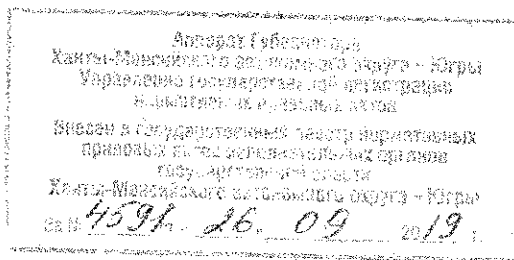 Аппарат Губернатора
Ханты-Мансийского автономного округа – Югры
Управление государственной регистрации
нормативных правовых актов
Внесен в государственный реестр нормативных
правовых актов исполнительных органов
государственной власти
Ханты-Мансийского автономного округа – Югры
за № 4591 " 26 " 09 2019 г.